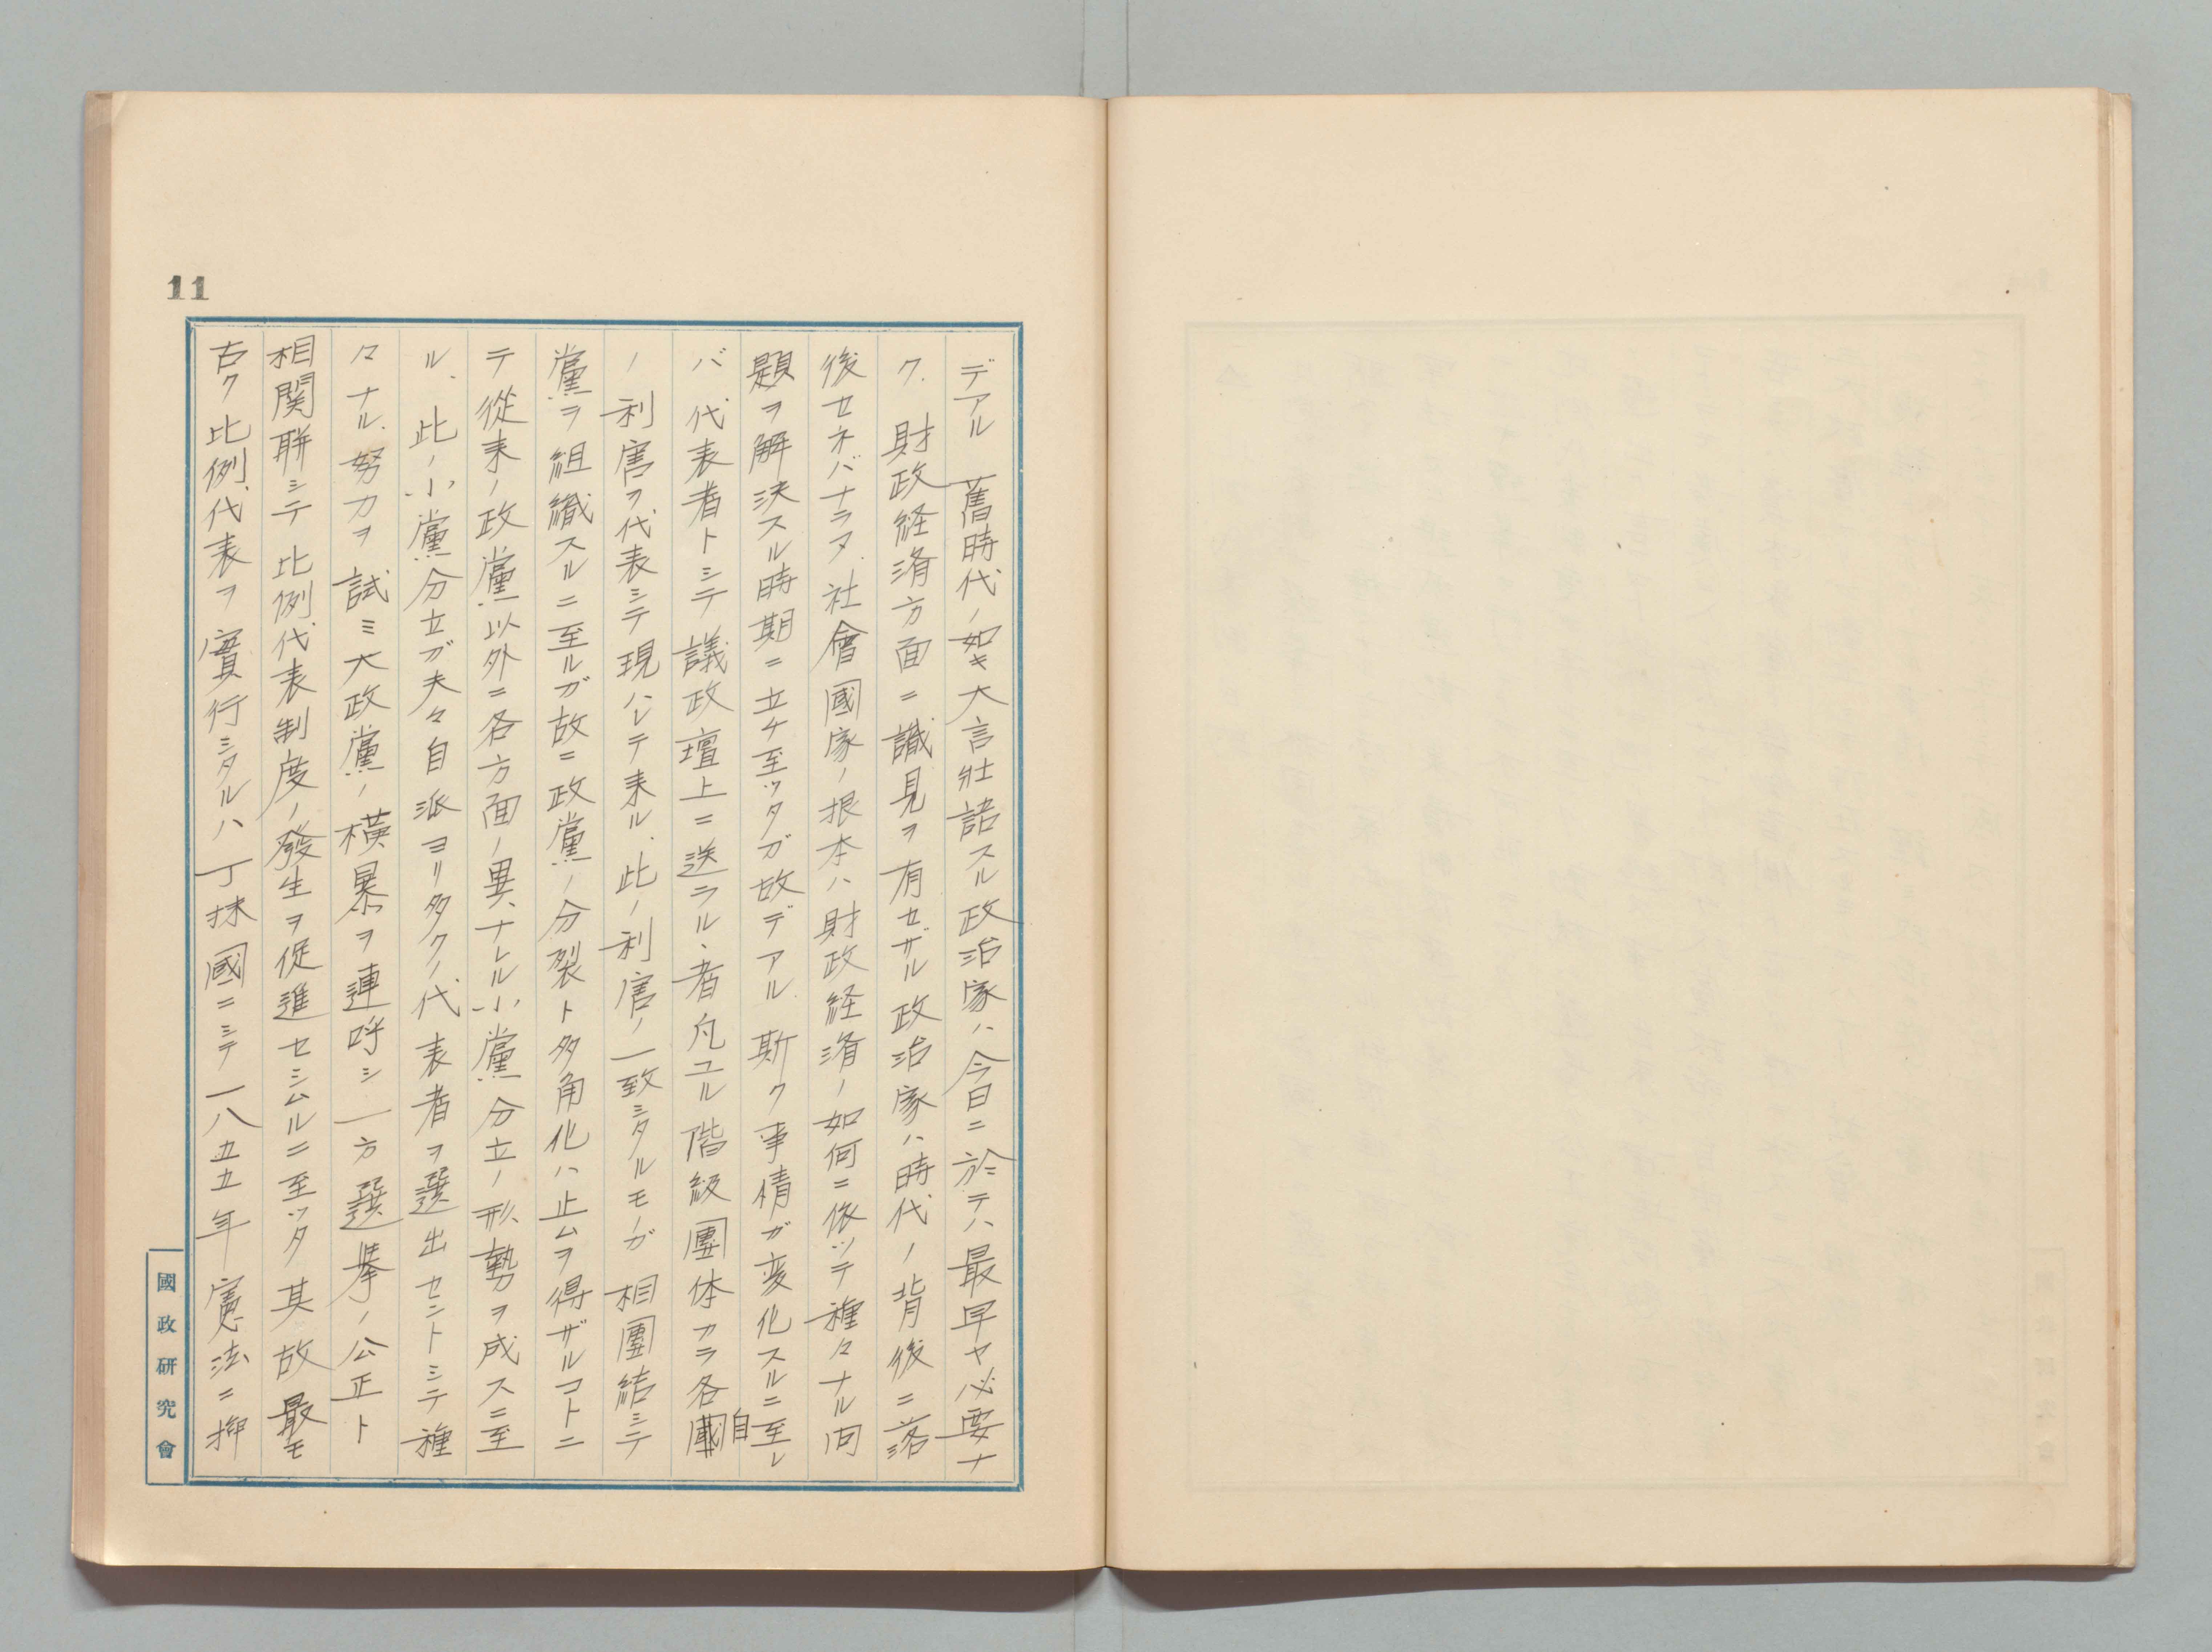 11
デアル　舊時代ノ如キ大言壮語スル政治家ハ今日ニ於テハ最早ヤ必要ナ
ク、財政経済方面ニ識見ヲ有セザル政治家ハ時代ノ背後ニ落
後セネバナラヌ、社會國家ノ根本ハ財政経済ノ如何ニ依ッテ種々ナル問
題ヲ解決スル時期ニ立チ至ッタガ故デアル、斯ク事情ガ変化スルニ至レ
バ代表者トシテ議政壇上ニ送ラル、者凡ユル階級團体カラ各自
ノ利害ヲ代表シテ現ハレテ来ル、此ノ利害ノ一致シタルモノガ相團結シテ
黨ヲ組織スルニ至ルガ故ニ政黨ノ分裂ト多角化ハ止ムヲ得ザルコトニ
テ從来ノ政黨以外ニ各方面ノ異ナレル小黨分立ノ形勢ヲ成スニ至
ル、此ノ小黨分立ガ夫々自派ヨリ多クノ代表者ヲ選出セントシテ種
々ナル努力ヲ試ミ大政黨ノ横暴ヲ連呼シ一方選挙ノ公正ト
相関聯シテ比例代表制度ノ發生ヲ促進セシムルニ至ッタ其故最モ
古ク比例代表ヲ實行シタルハ丁抹國ニシテ一八五五年憲法ニ挿
國政研究會